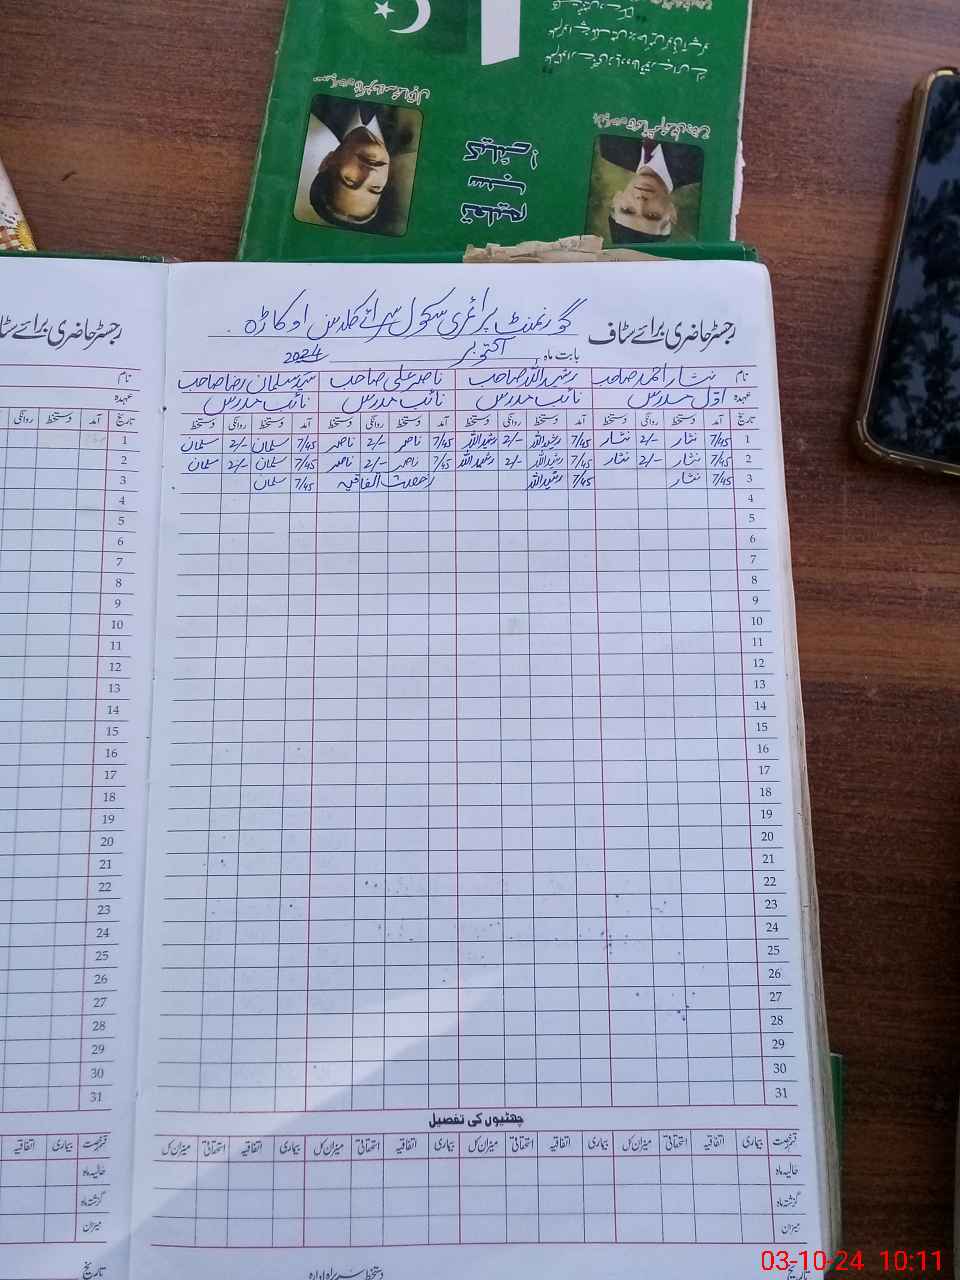 تعلیم
سب
کیلئے
رجسٹر حاضری برائے سٹاف
گورنمنٹ پرائمری سکول اوکاڑہ
بابت ماہ اکتوبر 2024
نام نثار احمد صاحب رشید اللہ صاحب ناصر علی صاحب سید سلمان رضا صاحب
عہدہ اول مدرس نائب مدرس نائب مدرس نائب مدرس
تاریخ آمد دستخط روانگی دستخط آمد دستخط روانگی دستخط آمد دستخط روانگی دستخط آمد دستخط روانگی دستخط
1 7/45 نثار 2/- نثار 7/45 رشید اللہ 2/- رشید اللہ 7/45 ناصر 2/- ناصر 7/45 سلمان 2/- سلمان
2 7/45 نثار 2/- نثار 7/45 رشید اللہ 2/- رشید اللہ 7/45 ناصر 2/- ناصر 7/45 سلمان 2/- سلمان
3 7/45 نثار 7/45 رشید اللہ رخصت اتفاقیہ 7/45 سلمان
4
5
6
7
8
9
10
11
12
13
14
15
16
17
18
19
20
21
22
23
24
25
26
27
28
29
30
31
چھٹیوں کی تفصیل
قسم رخصت بیماری اتفاقیہ استحقاقی میزان کل بیماری اتفاقیہ استحقاقی میزان کل بیماری اتفاقیہ استحقاقی میزان کل بیماری اتفاقیہ استحقاقی میزان کل
حالیہ ماہ
گزشتہ ماہ
میزان
تاریخ دستخط سربراہ ادارہ
رجسٹر حاضری برائے
نام
عہدہ
تاریخ آمد دستخط روانگی
1
2
3
4
5
6
7
8
9
10
11
12
13
14
15
16
17
18
19
20
21
22
23
24
25
26
27
28
29
30
31
قسم رخصت بیماری اتفاقیہ
حالیہ ماہ
گزشتہ ماہ
میزان
تاریخ
03-10-24 10:11